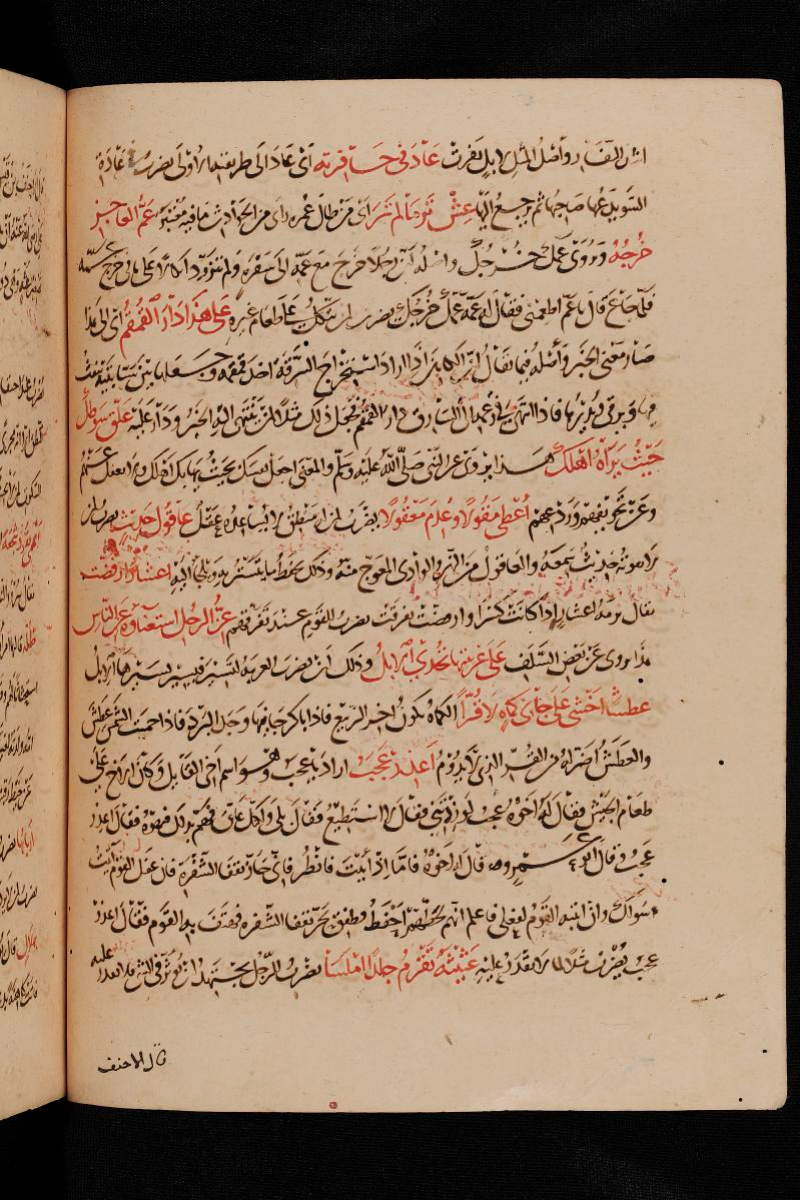 واصل المثل لابل نفرت عاد فى حافرته اى عاد الى طريقته الاولى يضرب عادة
السوء يدعها صاحبها ثم يرجع اليها عش تر ما لم تر اى من طال عمره راى من الحوادث ما فيه معتبر عير العاجز
خرجه ويروى عمك خرجك واصله ان رجلا خرج مع عمه الى سفره ولم يتزود اتكالا على ما فى خرج عمه
فلما جاع قال يا عم اطعمنى فقال له عمه عمك خرجك يضرب لمن يتكل على طعام غيره على هذا دار القمقم اى الى هذا
صار معنى الخبر واصله فيما يقال ان الكاهن اذا اراد استخراج السرقة اخذ قمقمه وجعلها بين سبابتيه ينفث
فيها ويرقى ويديرها فاذا انتهى فى زعمه الى السارق دار القمقم فجعل ذلك مثلا لمن ينتهى اليه الخبر ودار عليه علق سوطك
حيث يراه اهلك هذا يروى عن النبى صلى الله عليه وسلم والمعنى اجعل نفسك بحيث يهابك اهلك ولا تغفل عنهم
وعن تخويفهم وردعهم اعطى مقولا وعدم معقولا يضرب لمن له منطق لا يساعده عقل عاقول حديث يضرب لمن
لا يفوته حديث سمعه والعاقول من النهر والوادى المعوج منه وذلك يحفظ ما يستتر به ويلجأ اليه اعشار ارفضت
يقال برمة اعشار اذا كانت كسرا وارفضت تفرقت يضرب القوم عند تفرقهم عز الرجل استغناؤه عن الناس
هذا يروى عن بعض السلف على غريبتها تحدى الابل وذلك ان تضرب الغريبة لتسير فيسير بسيرها الابل
عطشا اخشى على جانى كماة لا قرا الكماة تكون اخر الربيع فاذا باكر جانيها وجد البرد فاذا حميت الشمس عطش
والعطش اضر له من القر الذى لا يدوم اعذر عجب اراد يا عجب وهو اسم اخى القائل وكان الاخ على
طعام الجيش فقال له اخوه عجب لو زدتنى فقال لا استطيع فقال بلى ولكنك عاق فهم بذلك فنهوه فقال اعذر
عجب وقال ابو عمرو قال له اخوه فاما اذ ابيت فانظر فانى حاز بقفا الشفرة فان غفل القوم اتيت
سؤلك وان انتبه القوم لفعلى فاعلم انهم لحظهم احفظ فطفق يحز بقفا الشفره فهتف به القوم فقال اعذر
عجب يضرب مثلا لما لا يقدر عليه عثيثة تقرم جلدا املسا يضرب للرجل يجتهد ان يؤثر فى الشئ فلا يقدر عليه
قال الاحنف